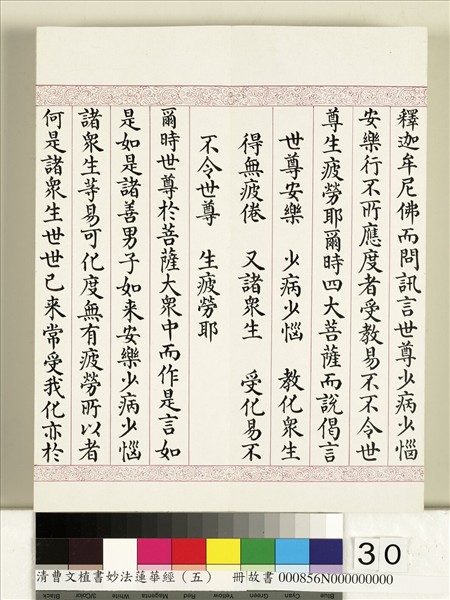 釋迦牟尼佛而問訊言世尊少病少惱
安樂行不所應度者受教易不不令世
尊生疲勞耶爾時四大菩薩而說偈言
世尊安樂 少病少惱 教化衆生
得無疲倦 又諸衆生 受化易不
不令世尊 生疲勞耶
爾時世尊於菩薩大衆中而作是言如
是如是諸善男子如來安樂少病少惱
諸衆生等易可化度無有疲勞所以者
何是諸衆生世世已來常受我化亦於
30
清曹文植書妙法蓮華經（五） 冊故書 000856N000000000
Black
3/Color
White
Magenta
Red
Yellow
Green
Cyan
Blue